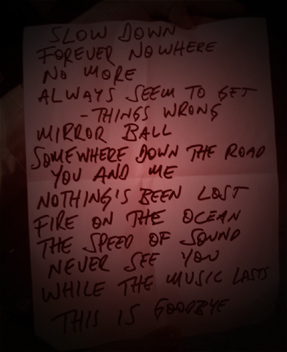 SLOW DOWN
FOREVER NOWHERE
NO MORE
ALWAYS SEEM TO GET
- THINGS WRONG
MIRROR BALL
SOMEWHERE DOWN THE ROAD
YOU AND ME
NOTHING'S BEEN LOST
FIRE ON THE OCEAN
THE SPEED OF SOUND
NEVER SEE YOU
WHILE THE MUSIC LASTS
THIS IS GOODBYE